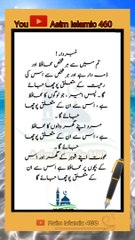 You Asim Islamic 460
خبردار!
تم میں سے ہر شخص محافظ اور
ذمہ دار ہے اور ہر شخص سے اس کی
رعیت کے متعلق پوچھا جائے
گا۔ پس امیر، جو لوگوں کا محافظ
ہے، اس سے ان کے متعلق پوچھا
جائے گا
مرد اپنے گھر والوں کا محافظ
ہے، اس سے ان کے متعلق پوچھا
جائے گا
عورت اپنے شوہر کے گھر اور اس
کے بچوں پر محافظ ہے، اس سے ان
کے متعلق پوچھا جائے گا
Asim Islamic 460